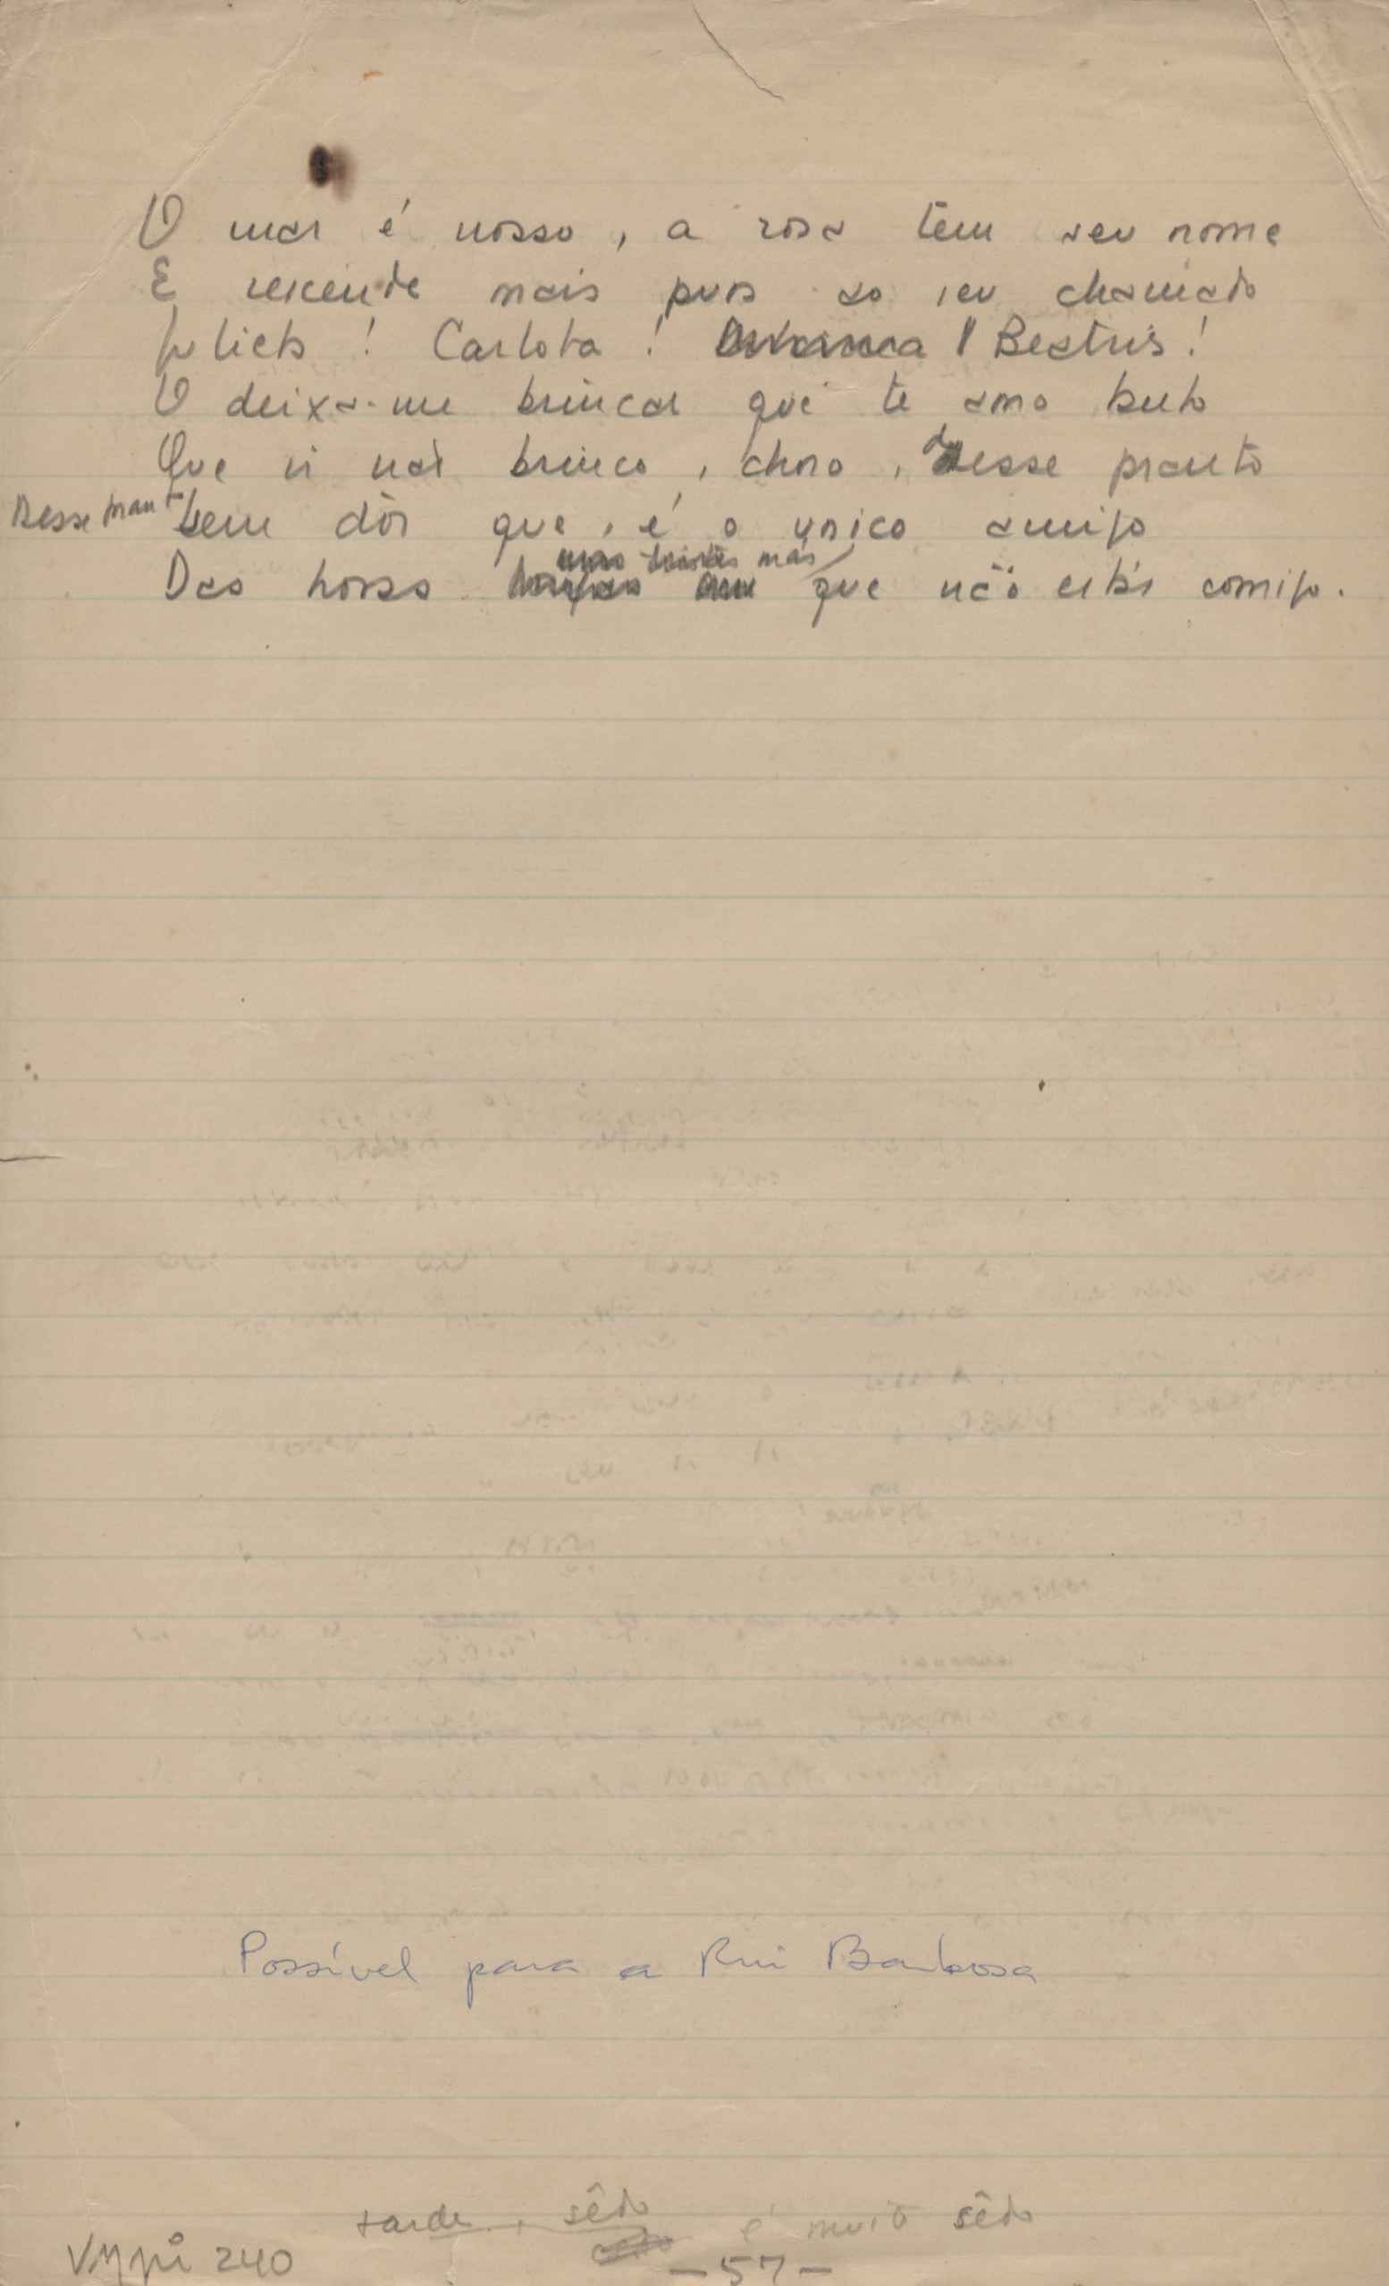 O mar é nosso, a rosa tem seu nome
E recende mais pura ao seu chamado
Julieta! Carlota! Beatris!
O deixa-me brincar que te amo tanto
Que si não brinco, choro, desse pranto
Desse pranto sem dôr que, é o unico amigo
Das horas mas tristes más que não estás comigo.
Possível para a Rui Barbosa
tarde, sêdo é muito sêdo
VMpi 240
-57-